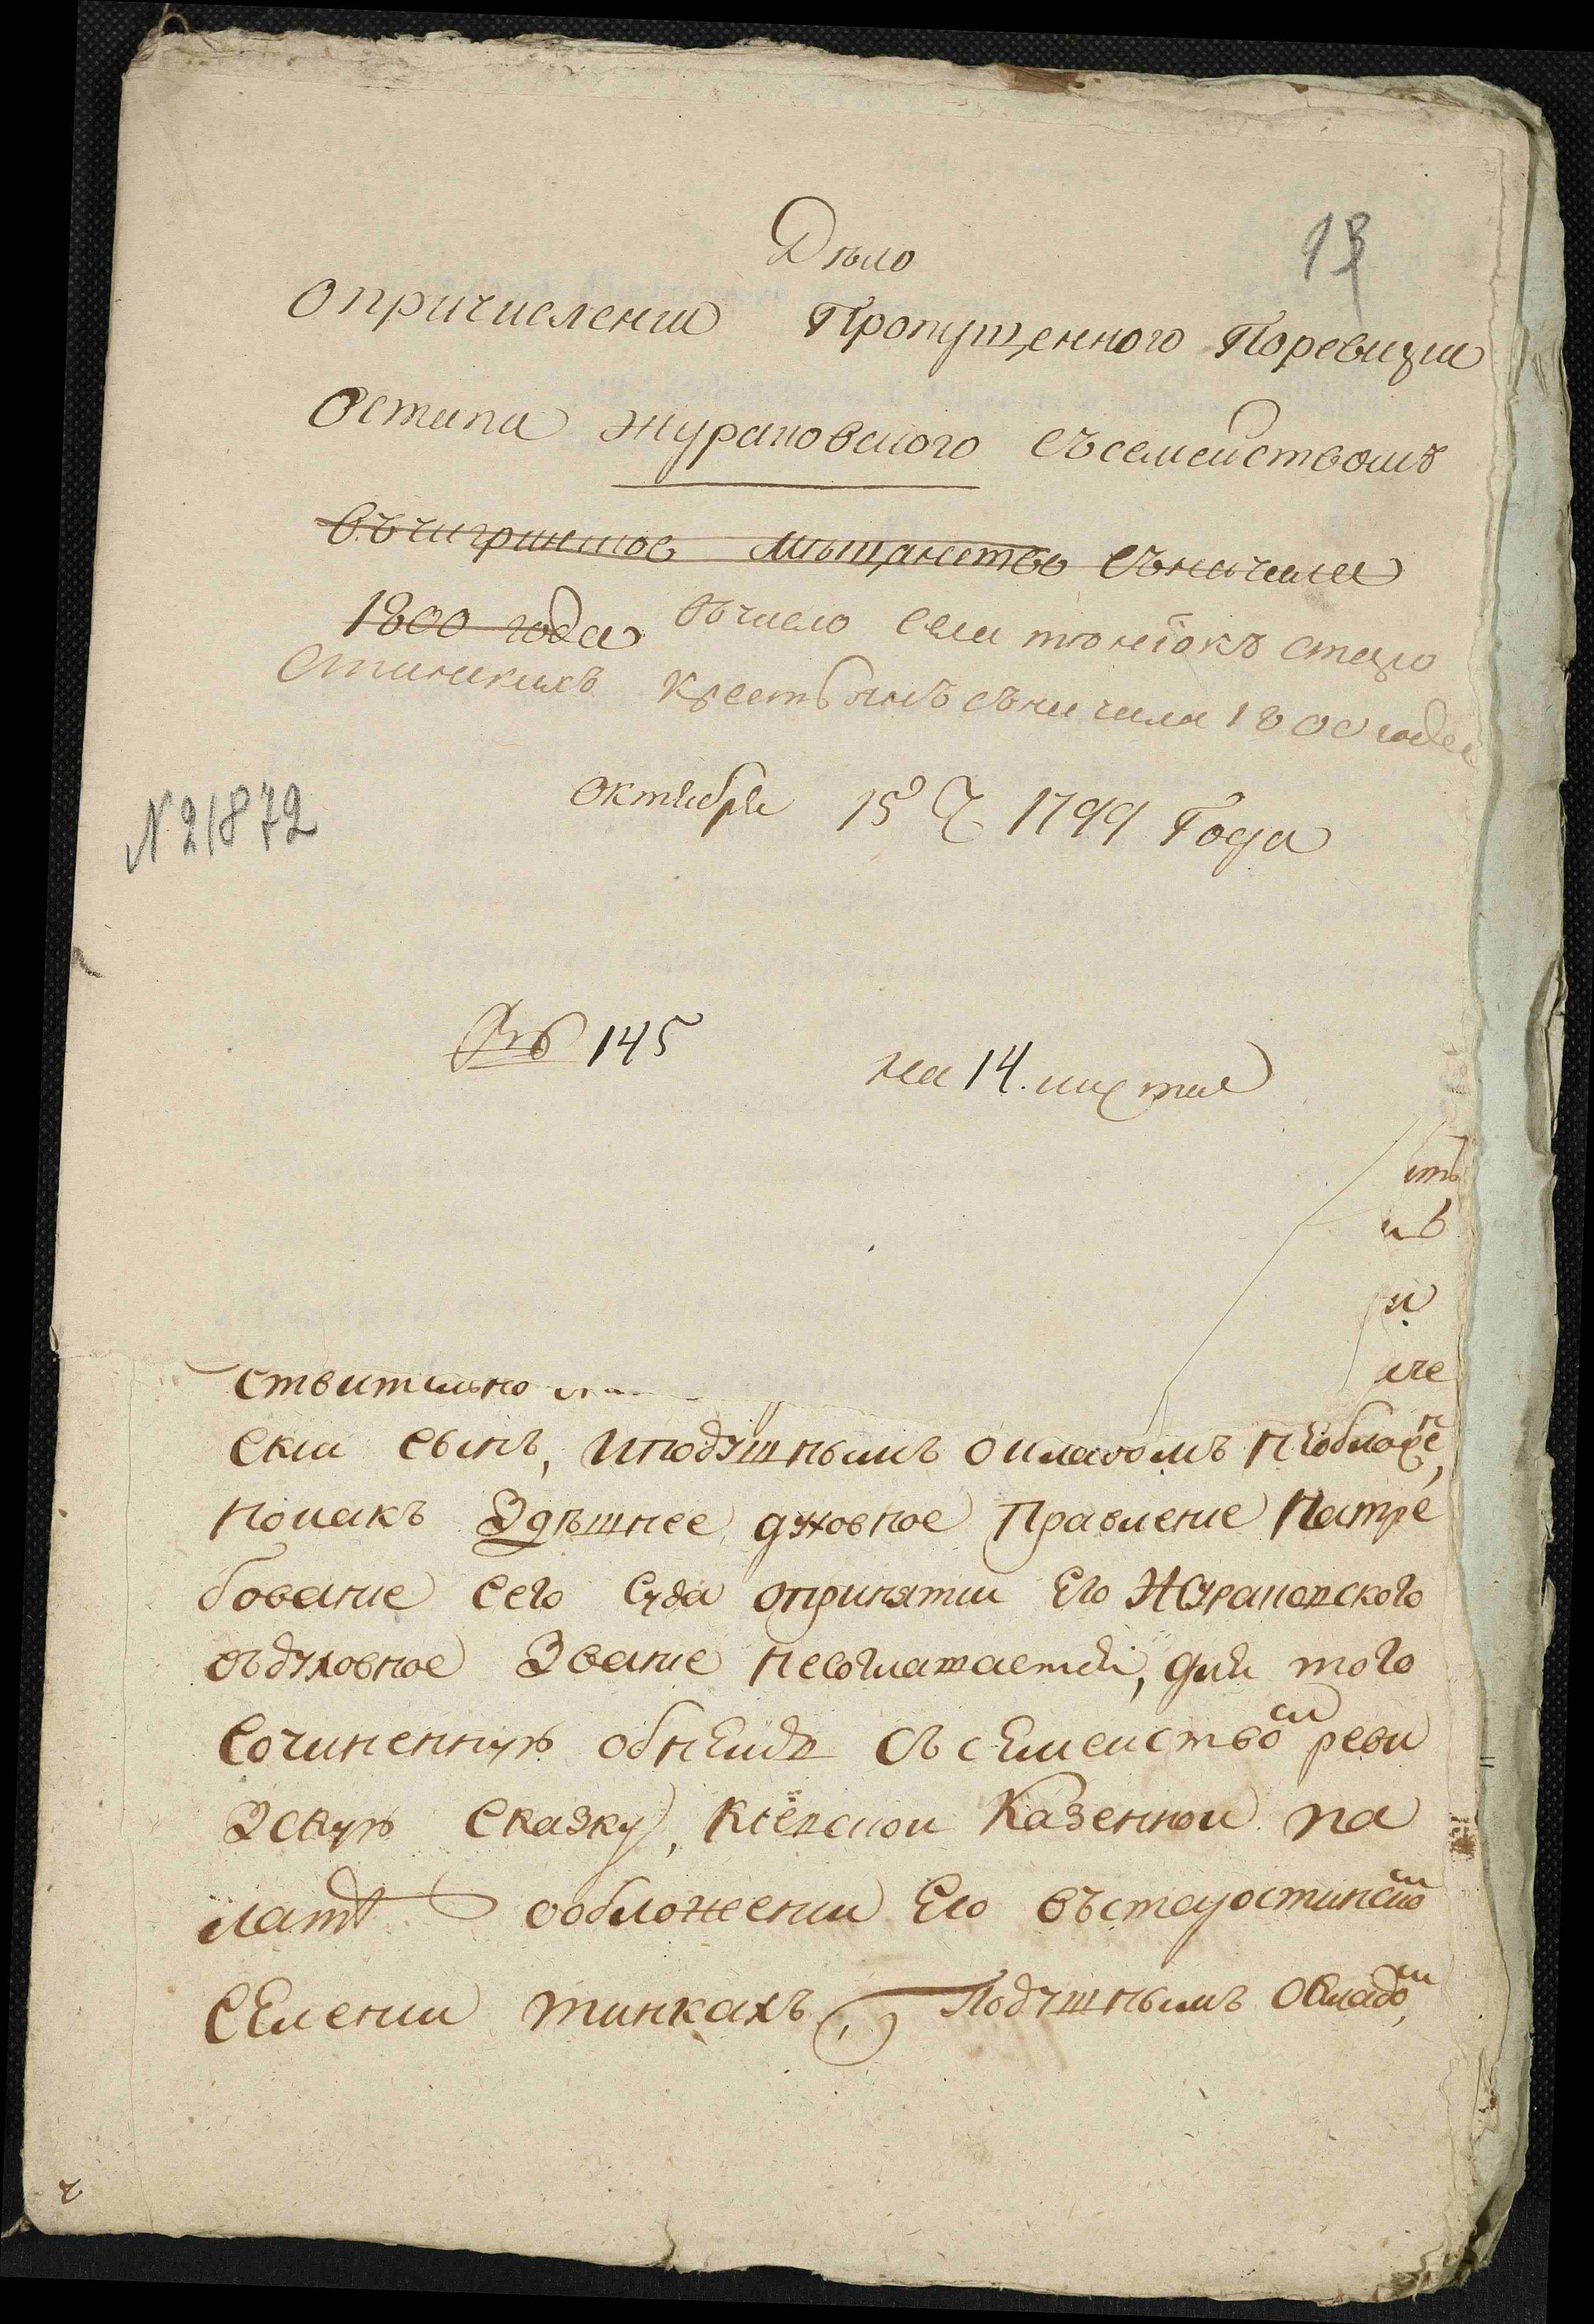 Дѣло
13
опричислении Пропущенного Поревизии
Остапа журановского съсемействомъ
въчигринское мѣщанство съначала
1800 года въчисло села тюнїокъ старо
стинскихъ крестьянъ съначала 1800 года
октября 15 Ч 1799 Года
№ 21872
№ 145
на 14. листа
сть
нъ
и
иче
ствительно
ский сынъ, иподушнымъ окладомъ необложе,
нокакъ Здѣшнее духовное Правление Натре
бование сего Суда опринятии Его Журановского
въдуховное Звание несоглашается, для того
Сочиненную обнемъ съ семействомъ реви
Зскую Сказку, Киевской Казенной па
латѣ ообложении Его въстаростинскомъ
селении тинкахъ, Подушнымъ Окладом,